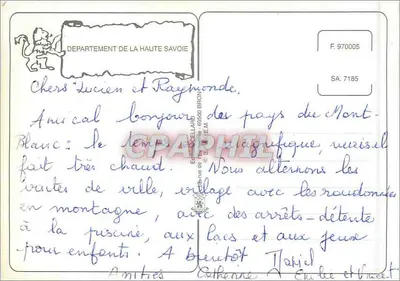 DEPARTEMENT DE LA HAUTE SAVOIE
F. 970005
SA. 7185
Chers Lucien et Raymonde,
Amical bonjour des pays du Mont-
Blanc : le temps est magnifique, mais il
fait très chaud. Nous alternons les
visites de ville, village avec les randonnées
en montagne, avec des arrêts-détente
à la piscine, aux lacs et aux jeux
pour enfants. A bientôt
Amitiés Catherine Emilie et Vincent
CARTAPHIL